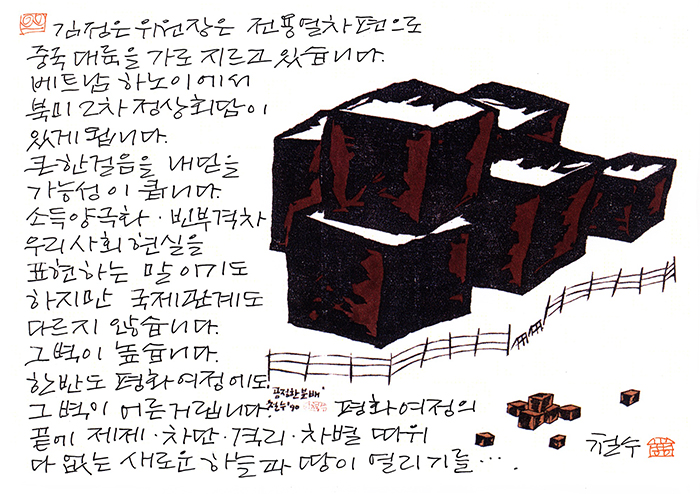 김정은 위원장은 전용열차편으로
중국 대륙을 가로 지르고 있습니다.
베트남 하노이에서
북미 2차 정상회담이
있게 됩니다.
큰 한걸음을 내딛을
가능성이 큽니다.
소득양극화·빈부격차
우리 사회 현실을
표현하는 말이기도
하지만 국제관계도
다르지 않습니다.
그 벽이 높습니다.
한반도 평화여정에도
그 벽이 어른거립니다.
공정한 분배
철수 '90
평화여정의
끝에 제제·차단·격리·차별 따위
다 없는 새로운 하늘과 땅이 열리기를….
철수